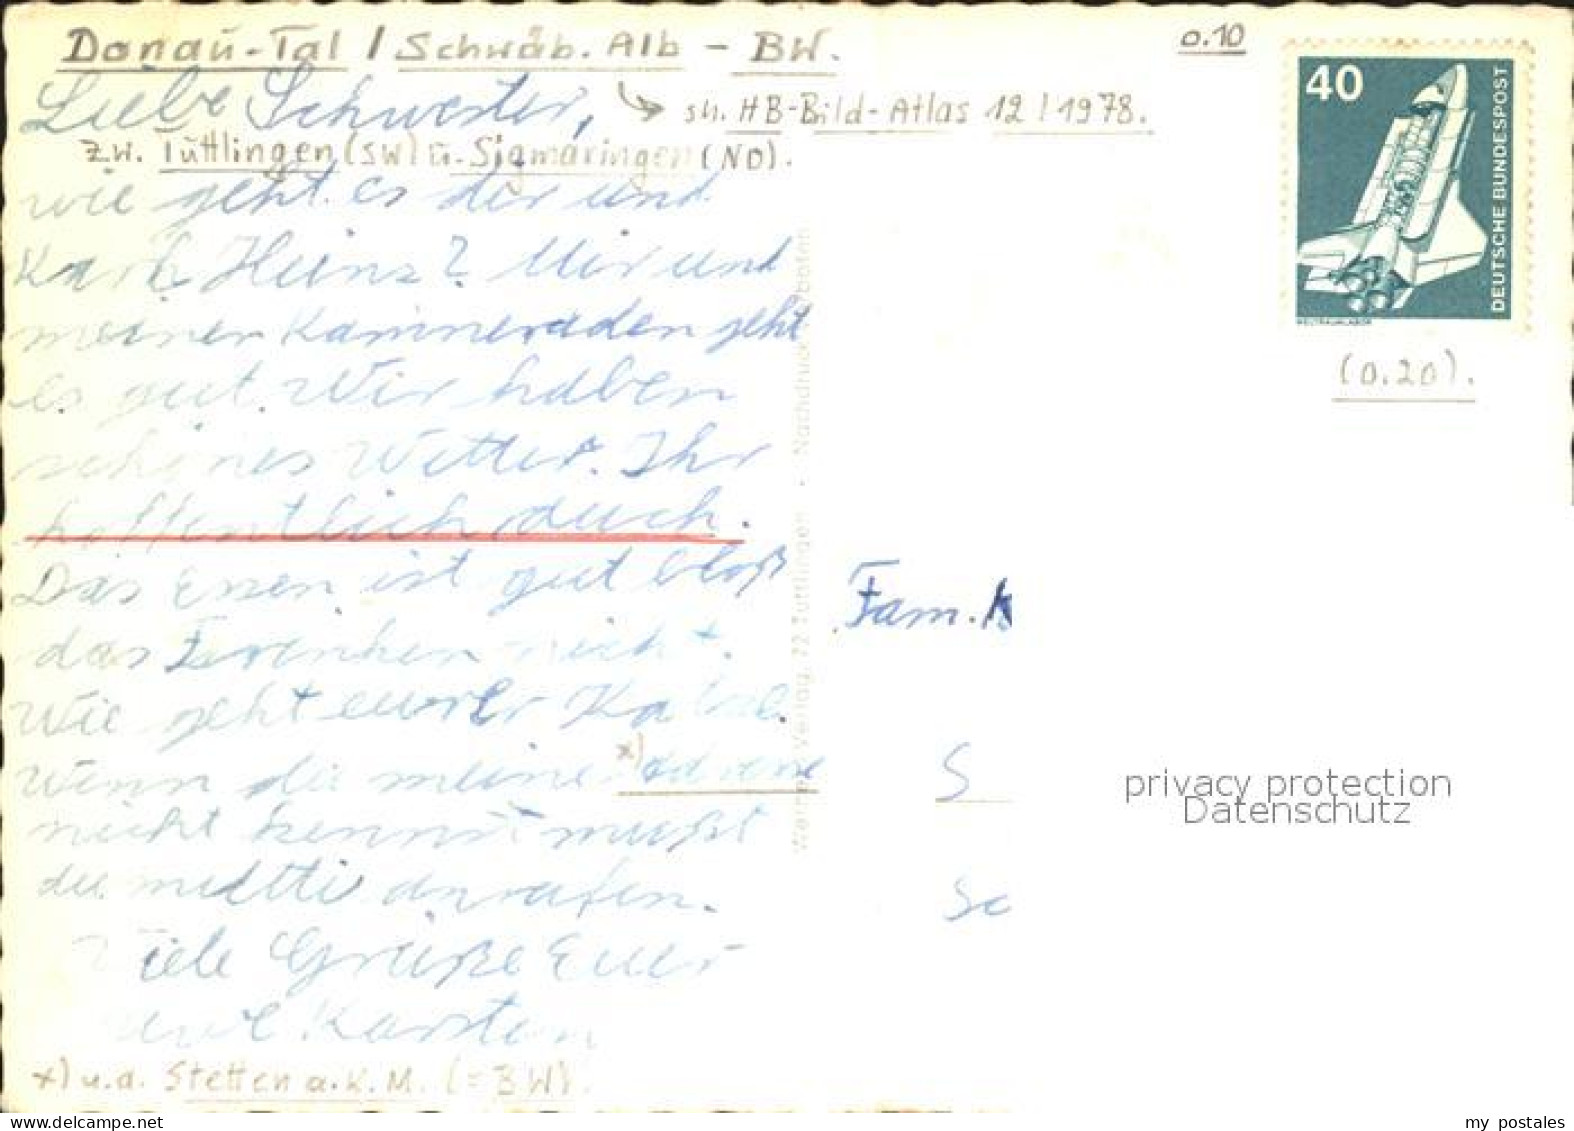 Donau-Tal / Schwäb. Alb - BW.
0.10
Liebe Schwester,
→ sh. HB-Bild-Atlas 12/1978.
zw. Tuttlingen (SW) u. Sigmaringen (NO).
wie geht es dir und
Karl Heinz? Mir und
meiner Kammeraden geht
es gut. Wir haben
schönes Wetter. Ihr
hoffentlich auch.
Das Essen ist gut bloß
das Trenken nicht.
Wie geht eurer
Wenn du meine *)
nicht kennst mußt
du mutti anrufen.
Viele Grüße Euer
Karsten
*) u.a. Stetten a.K.M. (=BW).
40
DEUTSCHE BUNDESPOST
WELTRAUMLABOR
(0.20).
Verlag, 72 Tuttlingen · Nachdruck verboten
Fam. K
S
Sc
privacy protection
Datenschutz
delcampe.net
my_postales